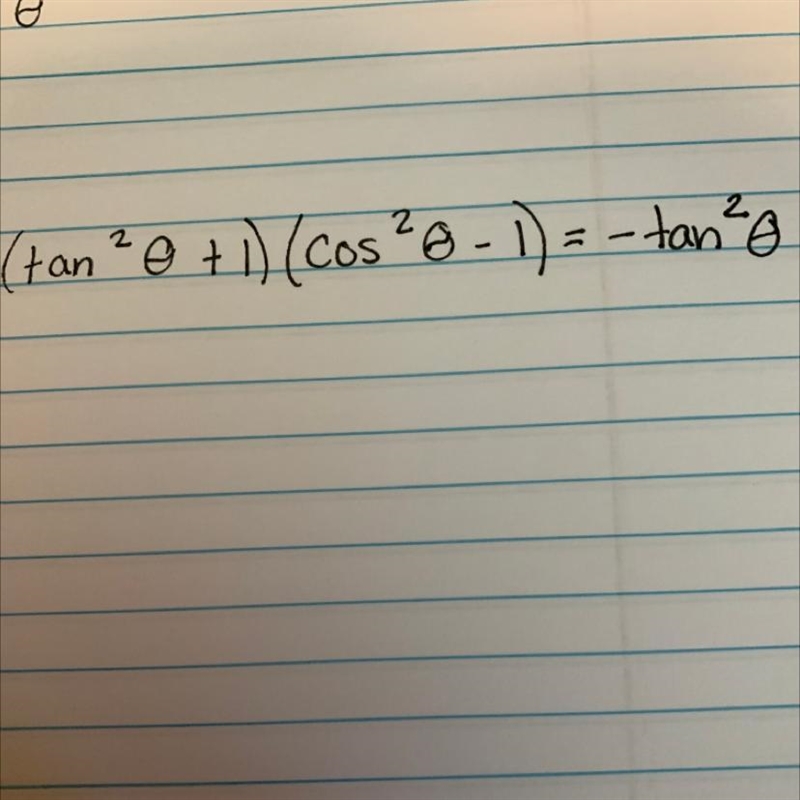 θ
(tan²θ + 1)(cos²θ - 1) = -tan²θ